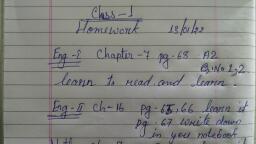 Class-1
Homework 13/01/22
Eng-I Chapter-7 pg-68 A2
Q.No 1,2
learn to read and learn.
Eng-II Ch-16 pg-65,66 learn it
pg-67 Write down
in your notebook